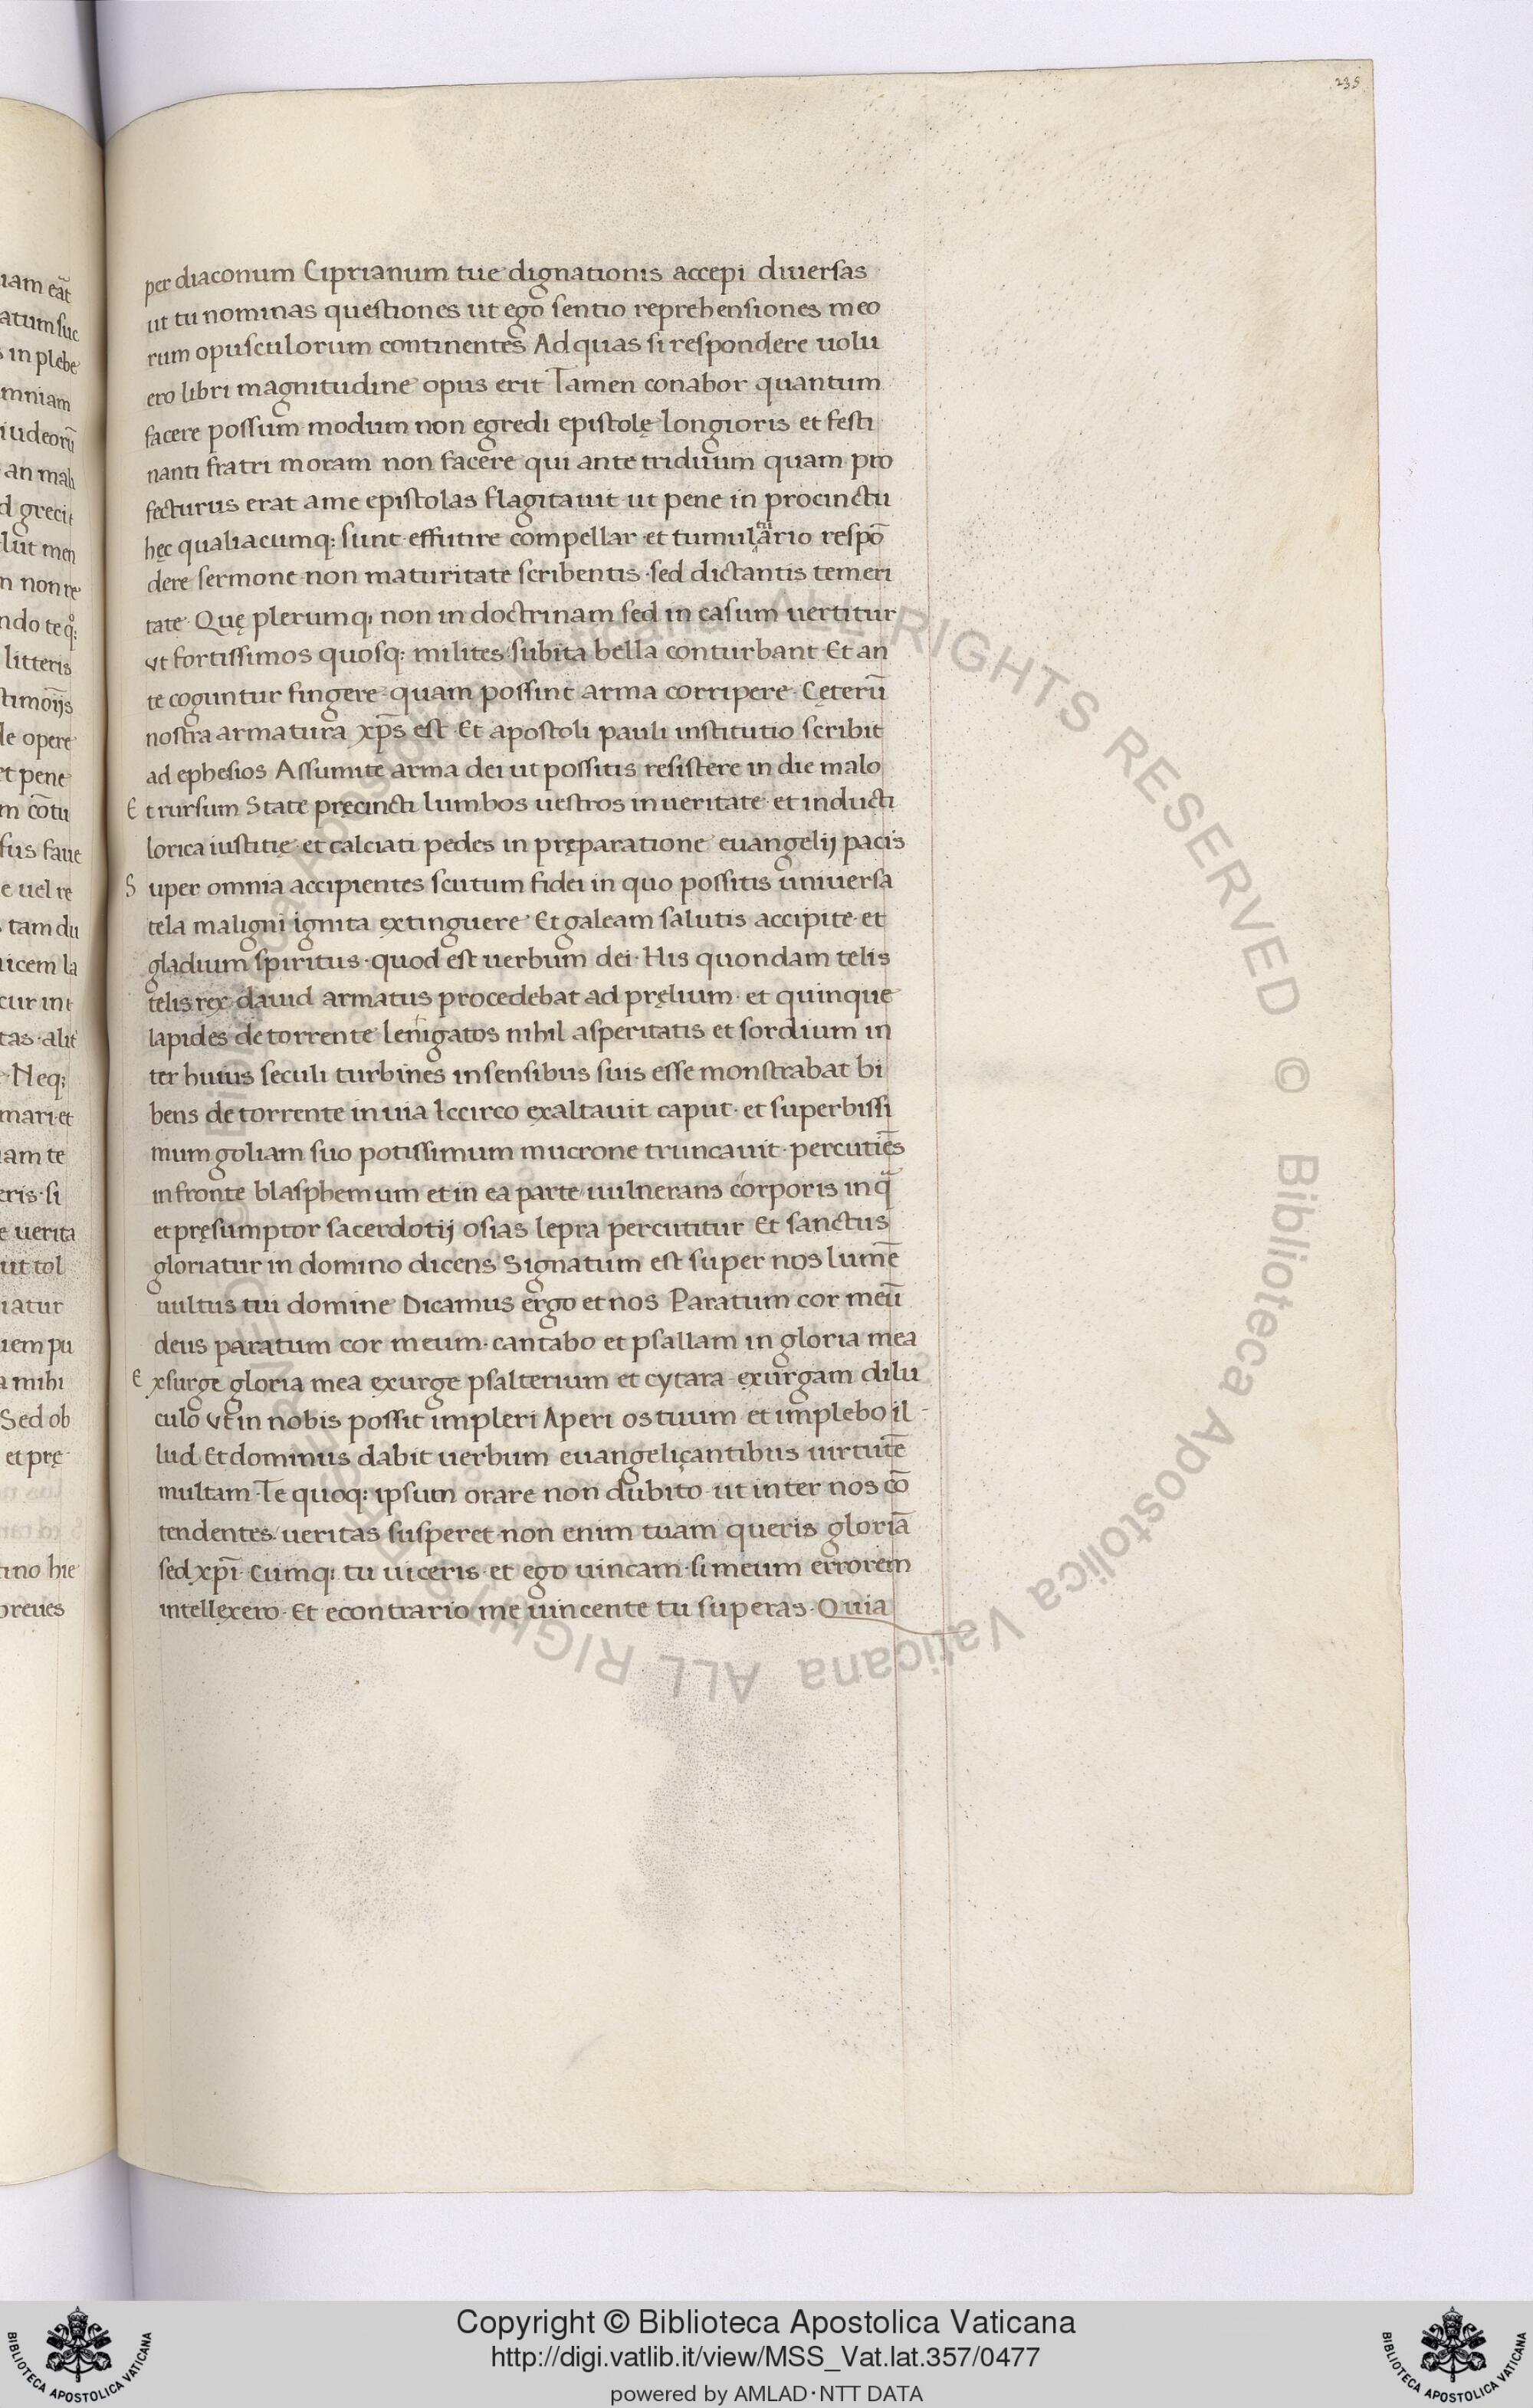 235
per diaconum Ciprianum tue dignationis accepi diuersas
ut tu nominas questiones ut ego sentio reprehensiones meo
rum opusculorum continentes Ad quas si respondere uolu
ero libri magnitudine opus erit Tamen conabor quantum
facere possum modum non egredi epistolę longioris et festi
nanti fratri moram non facere qui ante triduum quam pro
fecturus erat a me epistolas flagitauit ut pene in procinctu
hęc qualiacumq; sunt effutire compellar et tumultuario respō
dere sermone non maturitate scribentis sed dictantis temeri
tate Quę plerumq; non in doctrinam sed in casum uertitur
Vt fortissimos quosq; milites subita bella conturbant Et an
te coguntur fingere quam possint arma corripere Cęterū
nostra armatura xp̄s est Et apostoli pauli institutio scribit
ad ephesios Assumite arma dei ut possitis resistere in die malo
Et rursum State pręcincti lumbos uestros in ueritate et inducti
lorica iustitię et calciati pedes in pręparatione euangelij pacis
Super omnia accipientes scutum fidei in quo possitis uniuersa
tela maligni ignita extinguere Et galeam salutis accipite et
gladium spiritus quod est uerbum dei His quondam telis
telis rex dauid armatus procedebat ad pręlium et quinque
lapides de torrente leuigatos nihil asperitatis et sordium in
ter huius seculi turbines in sensibus suis esse monstrabat bi
bens de torrente in uia Iccirco exaltauit caput et superbissi
mum goliam suo potissimum mucrone truncauit percutiēs
in fronte blasphemum et in ea parte uulnerans corporis in qᵃ
et pręsumptor sacerdotij osias lepra percutitur Et sanctus
gloriatur in domino dicens Signatum est super nos lumē
uultus tui domine Dicamus ergo et nos Paratum cor meū
deus paratum cor meum cantabo et psallam in gloria mea
Exsurge gloria mea exurge psalterium et cytara exurgam dilu
culo Vt in nobis possit impleri Aperi os tuum et implebo il
lud Et dominus dabit uerbum euangeliçantibus uirtutē
multam Te quoq; ipsum orare non dubito ut inter nos cō
tendentes ueritas susperet non enim tuam queris gloriā
sed xp̄i Cumq; tu uiceris et ego uincam si meum errorem
intellexero Et econtrario me uincente tu superas Quia
Copyright © Biblioteca Apostolica Vaticana
http://digi.vatlib.it/view/MSS_Vat.lat.357/0477
powered by AMLAD·NTT DATA
BIBLIOTECA APOSTOLICA VATICANA
BIBLIOTECA APOSTOLICA VATICANA